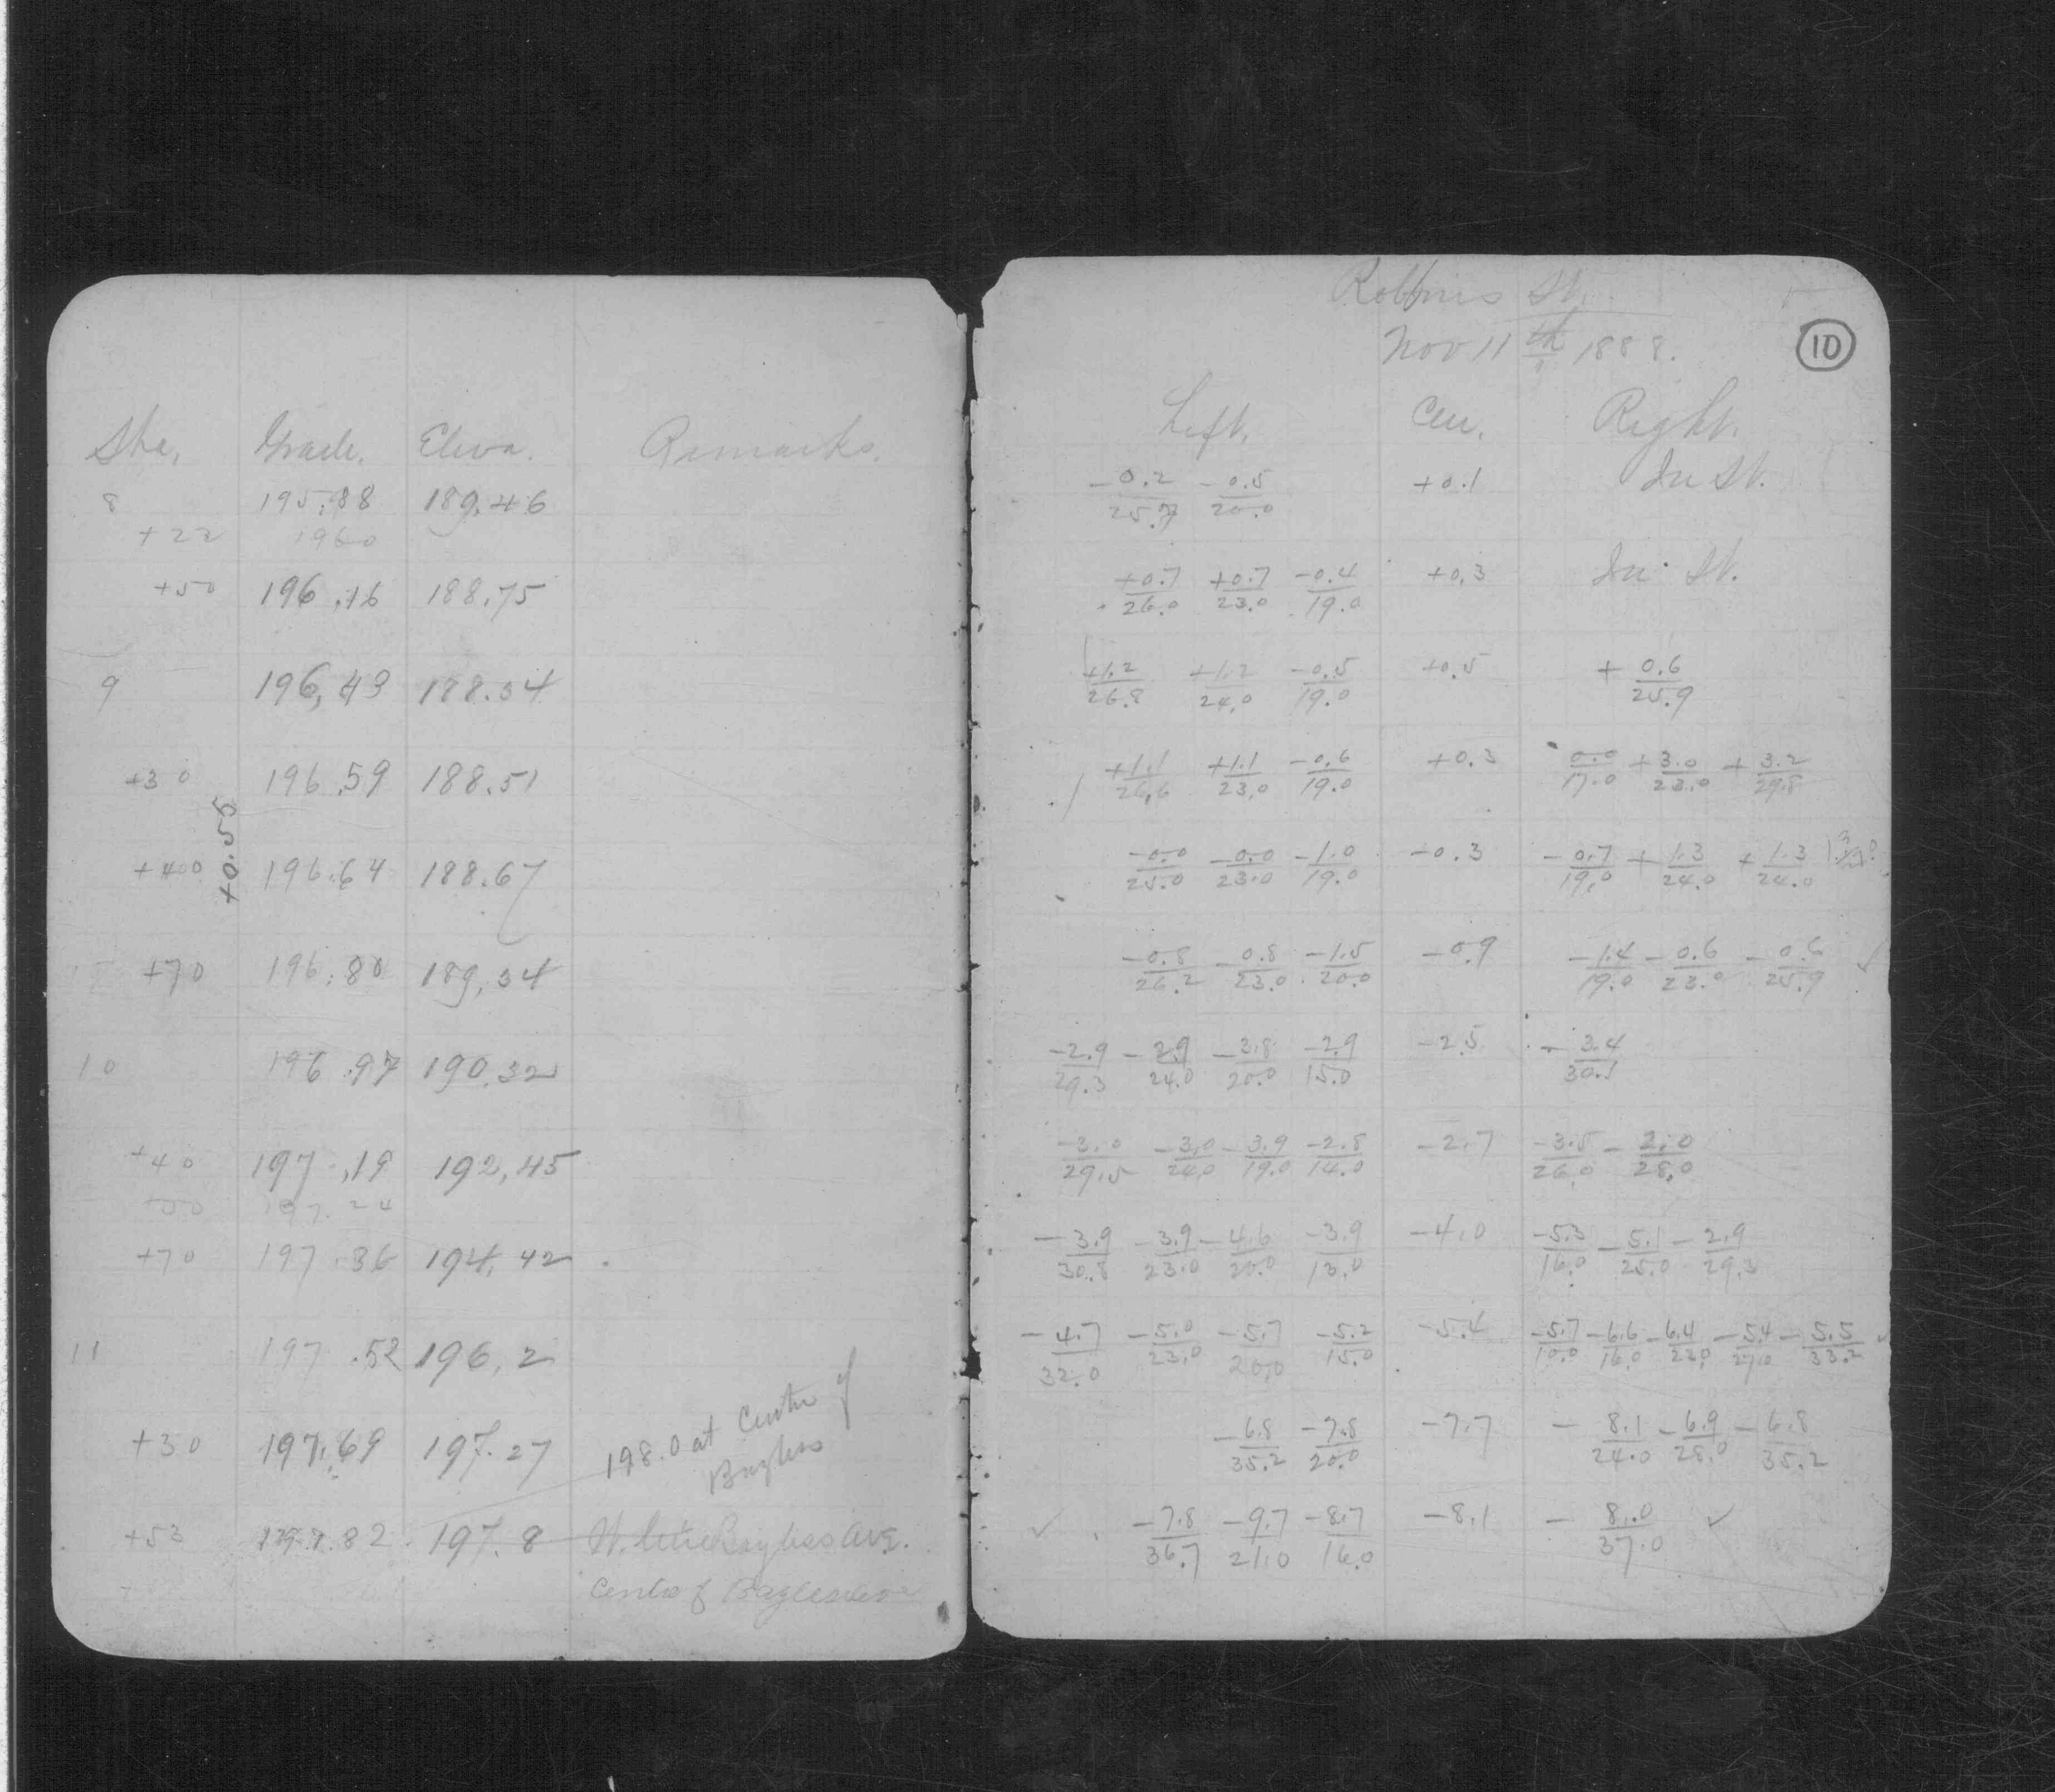 Sta. Grade. Eleva. Remarks.
8 195.88 189.46
+22 1960
+50 196.16 188.75
9 196.43 188.54
+30 196.59 188.51
+0.55
+40 196.64 188.67
+70 196.80 189.34
10 196.97 190.32
+40 197.19 192.45
50 197.24
+70 197.36 194.42
11 197.52 196.2
198.0 at Centre of
+30 197.69 197.27
Bayless
+53 197.82 197.8 Bayless Ave.
Centre of Bayless Ave
Robbins St.
Nov 11th 1888.
10
Left. Cen. Right.
-0.2/25.7 -0.5/20.0 +0.1 In St.
+0.7/26.0 +0.7/23.0 -0.4/19.0 +0.3 In St.
+1.2/26.8 +1.2/24.0 -0.5/19.0 +0.5 +0.6/25.9
+1.1/26.6 +1.1/23.0 -0.6/19.0 +0.3 0.0/17.0 +3.0/23.0 +3.2/29.8
-0.0/25.0 -0.0/23.0 -1.0/19.0 -0.3 -0.7/19.0 +1.3/24.0 +1.3/24.0
-0.8/26.2 -0.8/23.0 -1.5/20.0 -0.9 -1.4/19.0 -0.6/23.0 -0.6/25.9 ✓
-2.9/29.3 -2.9/24.0 -3.8/20.0 -2.9/15.0 -2.5 -3.4/30.1
-3.0/29.5 -3.0/24.0 -3.9/19.0 -2.8/14.0 -2.7 -3.5/26.0 -2.0/28.0
-3.9/30.8 -3.9/23.0 -4.6/20.0 -3.9/13.0 -4.0 -5.3/16.0 -5.1/25.0 -2.9/29.3
-4.7/32.0 -5.0/23.0 -5.7/20.0 -5.2/15.0 -5.4 -5.7/10.0 -6.6/16.0 -6.4/23.0 -5.4/27.0 -5.5/33.2 ✓
-6.8/35.2 -7.8/20.0 -7.7 -8.1/24.0 -6.9/28.0 -6.8/35.2
✓ -7.8/36.7 -9.7/21.0 -8.7/16.0 -8.1 -8.0/37.0 ✓